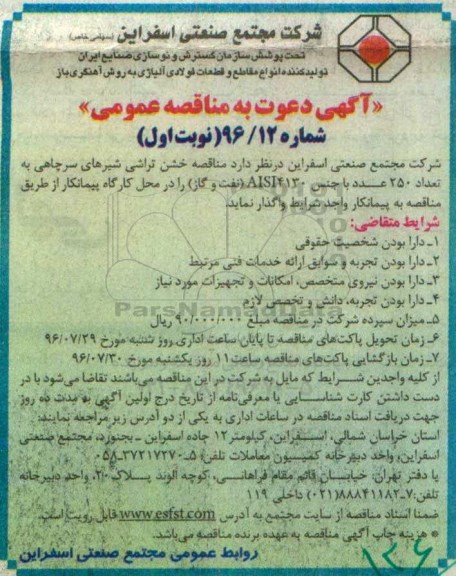 شرکت مجتمع صنعتی اسفراین (سهامی خاص)
تحت پوشش سازمان گسترش و نوسازی صنایع ایران
تولید کننده انواع مقاطع و قطعات فولادی آلیاژی به روش آهنگری باز
«آگهی دعوت به مناقصه عمومی»
شماره ۹۶/۱۲ (نوبت اول)
شرکت مجتمع صنعتی اسفراین درنظر دارد مناقصه خشن تراشی شیرهای سرچاهی به
تعداد ۲۵۰ عـدد با جنس AISI۴۱۳۰ (نفت و گاز) را در محل کارگاه پیمانکار از طریق
مناقصه به پیمانکار واجد شرایط واگذار نماید.
شرایط متقاضی:
۱ـ دارا بودن شخصیت حقوقی
۲ـ دارا بودن تجربه و سوابق ارائه خدمات فنی مرتبط
۳ـ دارا بودن نیروی متخصص، امکانات و تجهیزات مورد نیاز
۴ـ دارا بودن تجربه، دانش و تخصص لازم
۵ـ میزان سپرده شرکت در مناقصه مبلغ ۹۰/۰۰۰/۰۰۰ ریال
۶ـ زمان تحویل پاکت‌های مناقصه تا پایان ساعت اداری روز شنبه مورخ ۹۶/۰۷/۲۹
۷ـ زمان بازگشایی پاکت‌های مناقصه ساعت ۱۱ روز یکشنبه مورخ ۹۶/۰۷/۳۰
از کلیه واجدین شـرایط که مایل به شرکت در این مناقصه می‌باشند تقاضا می‌شود با در
دست داشتن کارت شناسـایی یا معرفی‌نامه از تاریخ درج اولین آگهی به مدت ده روز
جهت دریافت اسناد مناقصه در ساعات اداری به یکی از دو آدرس زیر مراجعه نمایند:
استان خراسان شمالی، اسـفراین، کیلومتر ۱۲ جاده اسفراین ـ بجنورد، مجتمع صنعتی
اسفراین، واحد دبیرخانه کمیسیون معاملات تلفن: ۵ـ۳۷۲۱۷۲۷۰ـ۰۵۸
یا دفتر تهران: خیابـان قائم مقام فراهانـی، کوچه الوند پـلاک ۲۰، واحد دبیرخانه
تلفن: ۷ـ۸۸۸۴۱۱۸۲(۰۲۱) داخلی ۱۱۹
ضمنا اسناد مناقصه از سایت مجتمع به آدرس www.esfst.com قابل رویت است.
* هزینه چاپ آگهی مناقصه به عهده برنده مناقصه می‌باشد.
روابط عمومی مجتمع صنعتی اسفراین
ParsNamadData